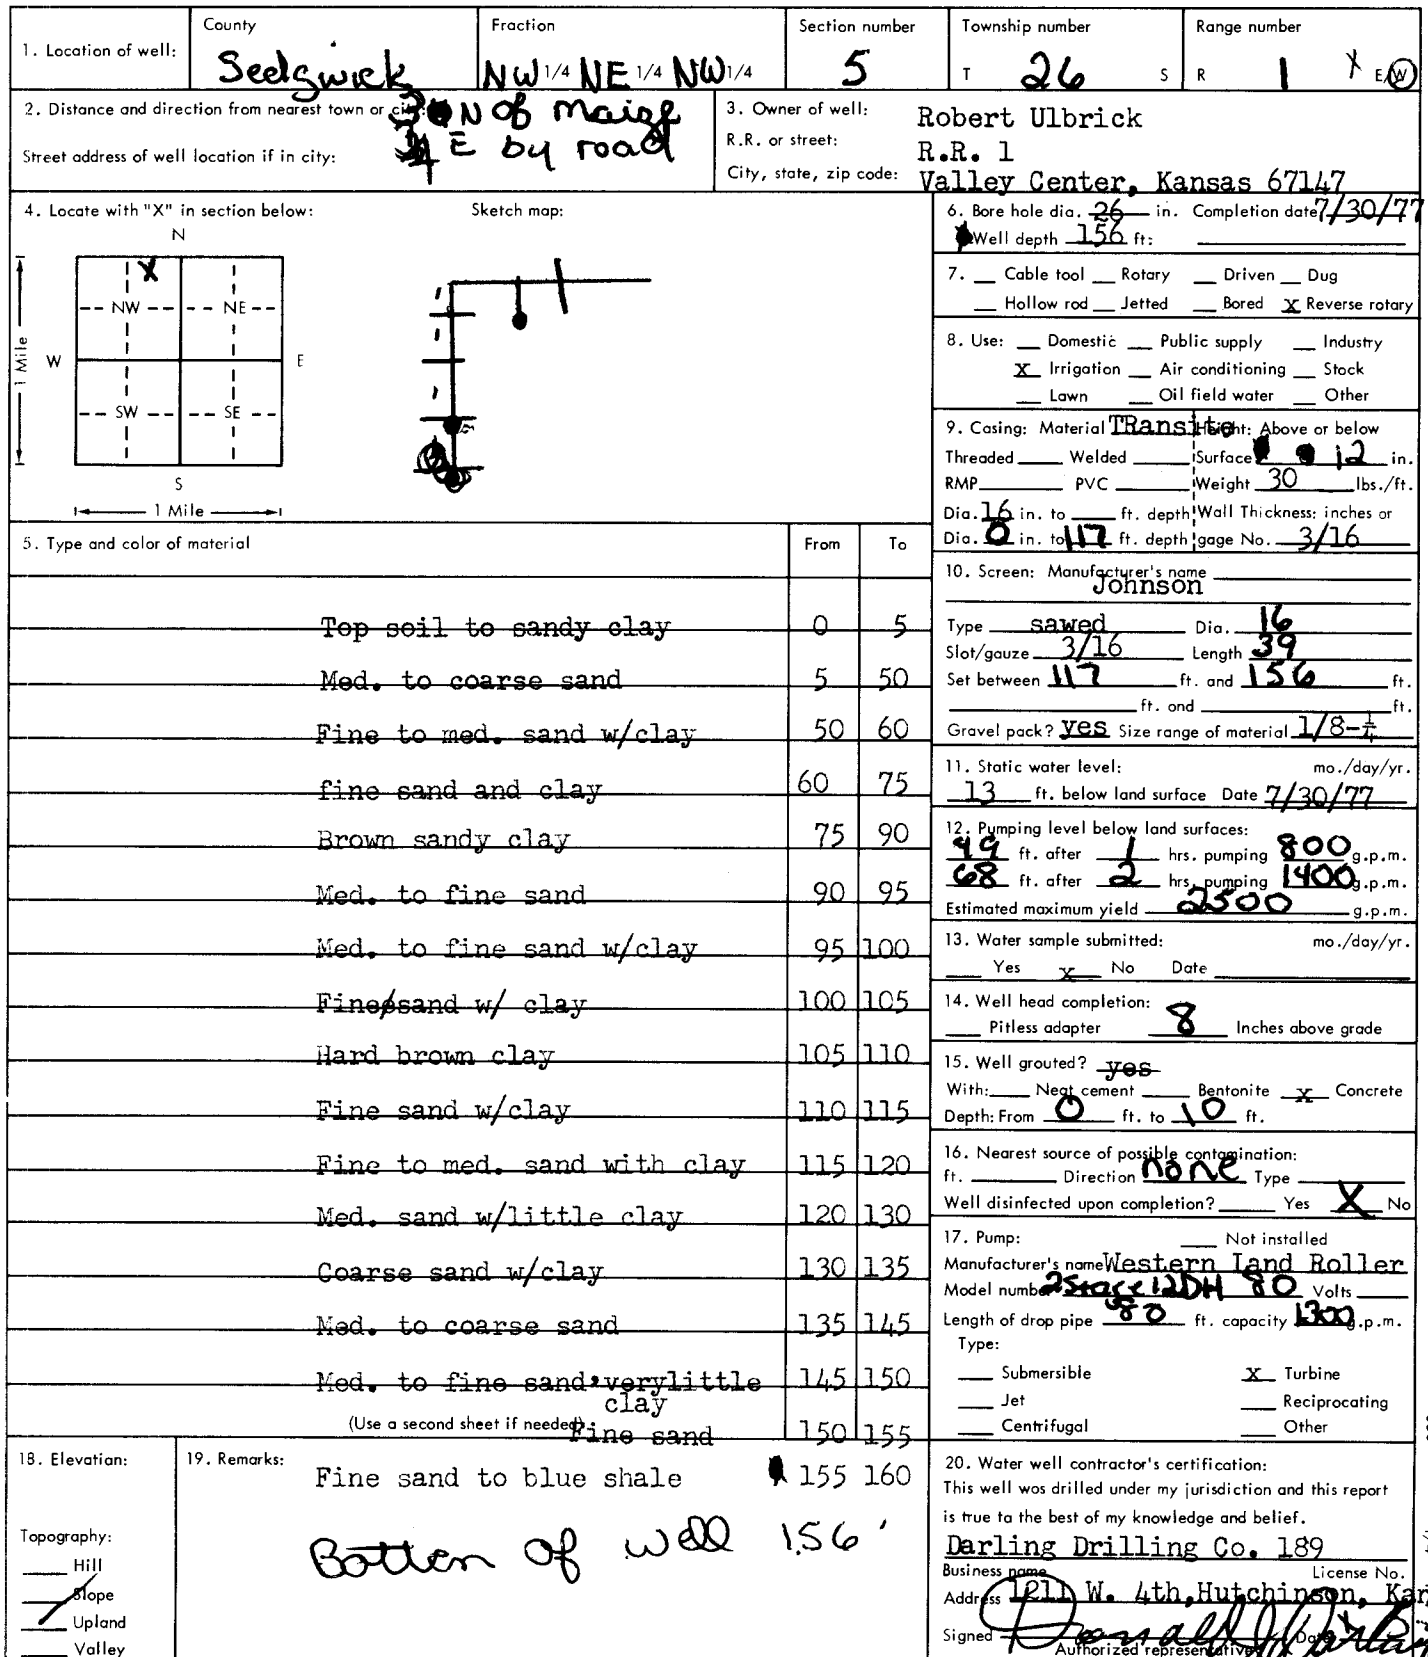 1. Location of well: County Sedgwick Fraction NW 1/4 NE 1/4 NW 1/4 Section number 5 Township number T 26 S Range number R 1 X E/W
2. Distance and direction from nearest town or city: 3 N of Maize
Street address of well location if in city: 3/4 E by road
3. Owner of well: Robert Ulbrick
R.R. or street: R.R. 1
City, state, zip code: Valley Center, Kansas 67147
4. Locate with "X" in section below: Sketch map:
N
X
NW NE
W E
SW SE
S
1 Mile
1 Mile
5. Type and color of material From To
Top soil to sandy clay 0 5
Med. to coarse sand 5 50
Fine to med. sand w/clay 50 60
fine sand and clay 60 75
Brown sandy clay 75 90
Med. to fine sand 90 95
Med. to fine sand w/clay 95 100
Fine sand w/ clay 100 105
Hard brown clay 105 110
Fine sand w/clay 110 115
Fine to med. sand with clay 115 120
Med. sand w/little clay 120 130
Coarse sand w/clay 130 135
Med. to coarse sand 135 145
Med. to fine sand, verylittle 145 150
clay
(Use a second sheet if needed) Fine sand 150 155
18. Elevation:
Topography:
Hill
Slope
Upland
Valley
19. Remarks:
Fine sand to blue shale 155 160
Botten of well 156'
6. Bore hole dia. 26 in. Completion date 7/30/77
Well depth 156 ft:
7. Cable tool Rotary Driven Dug
Hollow rod Jetted Bored X Reverse rotary
8. Use: Domestic Public supply Industry
X Irrigation Air conditioning Stock
Lawn Oil field water Other
9. Casing: Material TRansite Height: Above or below
Threaded Welded Surface 12 in.
RMP PVC Weight 30 lbs./ft.
Dia. 16 in. to ft. depth Wall Thickness: inches or
Dia. 0 in. to 117 ft. depth gage No. 3/16
10. Screen: Manufacturer's name
Johnson
Type sawed Dia. 16
Slot/gauze 3/16 Length 39
Set between 117 ft. and 156 ft.
ft. and ft.
Gravel pack? yes Size range of material 1/8-1/4
11. Static water level: mo./day/yr.
13 ft. below land surface Date 7/30/77
12. Pumping level below land surfaces:
49 ft. after 1 hrs. pumping 800 g.p.m.
68 ft. after 2 hrs. pumping 1400 g.p.m.
Estimated maximum yield 2500 g.p.m.
13. Water sample submitted: mo./day/yr.
Yes X No Date
14. Well head completion:
Pitless adapter 8 Inches above grade
15. Well grouted? yes
With: Neat cement Bentonite X Concrete
Depth: From 0 ft. to 10 ft.
16. Nearest source of possible contamination:
ft. Direction none Type
Well disinfected upon completion? Yes X No
17. Pump: Not installed
Manufacturer's name Western Land Roller
Model number 2 Stage 12DH 80 Volts
Length of drop pipe 80 ft. capacity 1300 g.p.m.
Type:
Submersible X Turbine
Jet Reciprocating
Centrifugal Other
20. Water well contractor's certification:
This well was drilled under my jurisdiction and this report
is true to the best of my knowledge and belief.
Darling Drilling Co. 189
Business name License No.
Address 1211 W. 4th, Hutchinson, Kan
Signed Donald J Darling Date
Authorized representative